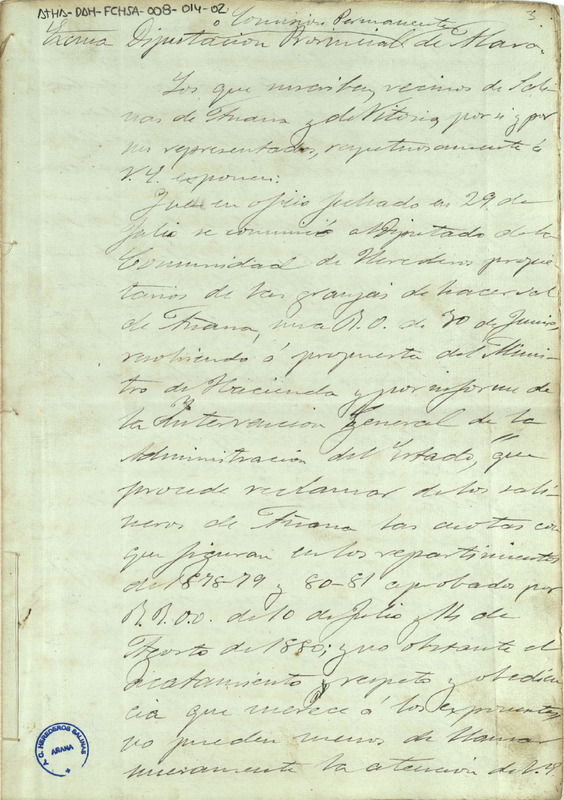 ATHA-DAH-FCHSA-008-014-02
3.
ó Comision Permanente
Excma Diputacion Provincial de Alava.
Los que suscriben, vecinos de Sali-
nas de Añana y de Vitoria, por si y por
sus representados, respetuosamente á
V.E. exponen:
Que en oficio fechado en 29 de
Julio se comunicó al Diputado de la
Comunidad de Herederos propie-
tarios de las granjas de hacer sal
de Añana, una R.O. de 30 de Junio,
resolviendo á propuesta del Minis-
tro de Hacienda y por informe de
la Intervencion General de la
Administracion del Estado, "que
procede reclamar de los sali-
neros de Añana las cuotas con
que figuran en los repartimientos
de 1878-79 y 80-81 aprobados por
R.R.O.O. de 10 de Julio y 14 de
Agosto de 1880; y no obstante el
acatamiento, respeto y obedien-
cia que merece á los exponentes,
no pueden menos de llamar
nuevamente la atencion de V.E.
C. HEREDEROS SALINAS
AÑANA